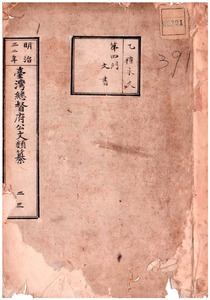 明治
二二年
臺灣總督府公文類纂
二三
乙種永久
第四門
文書
39